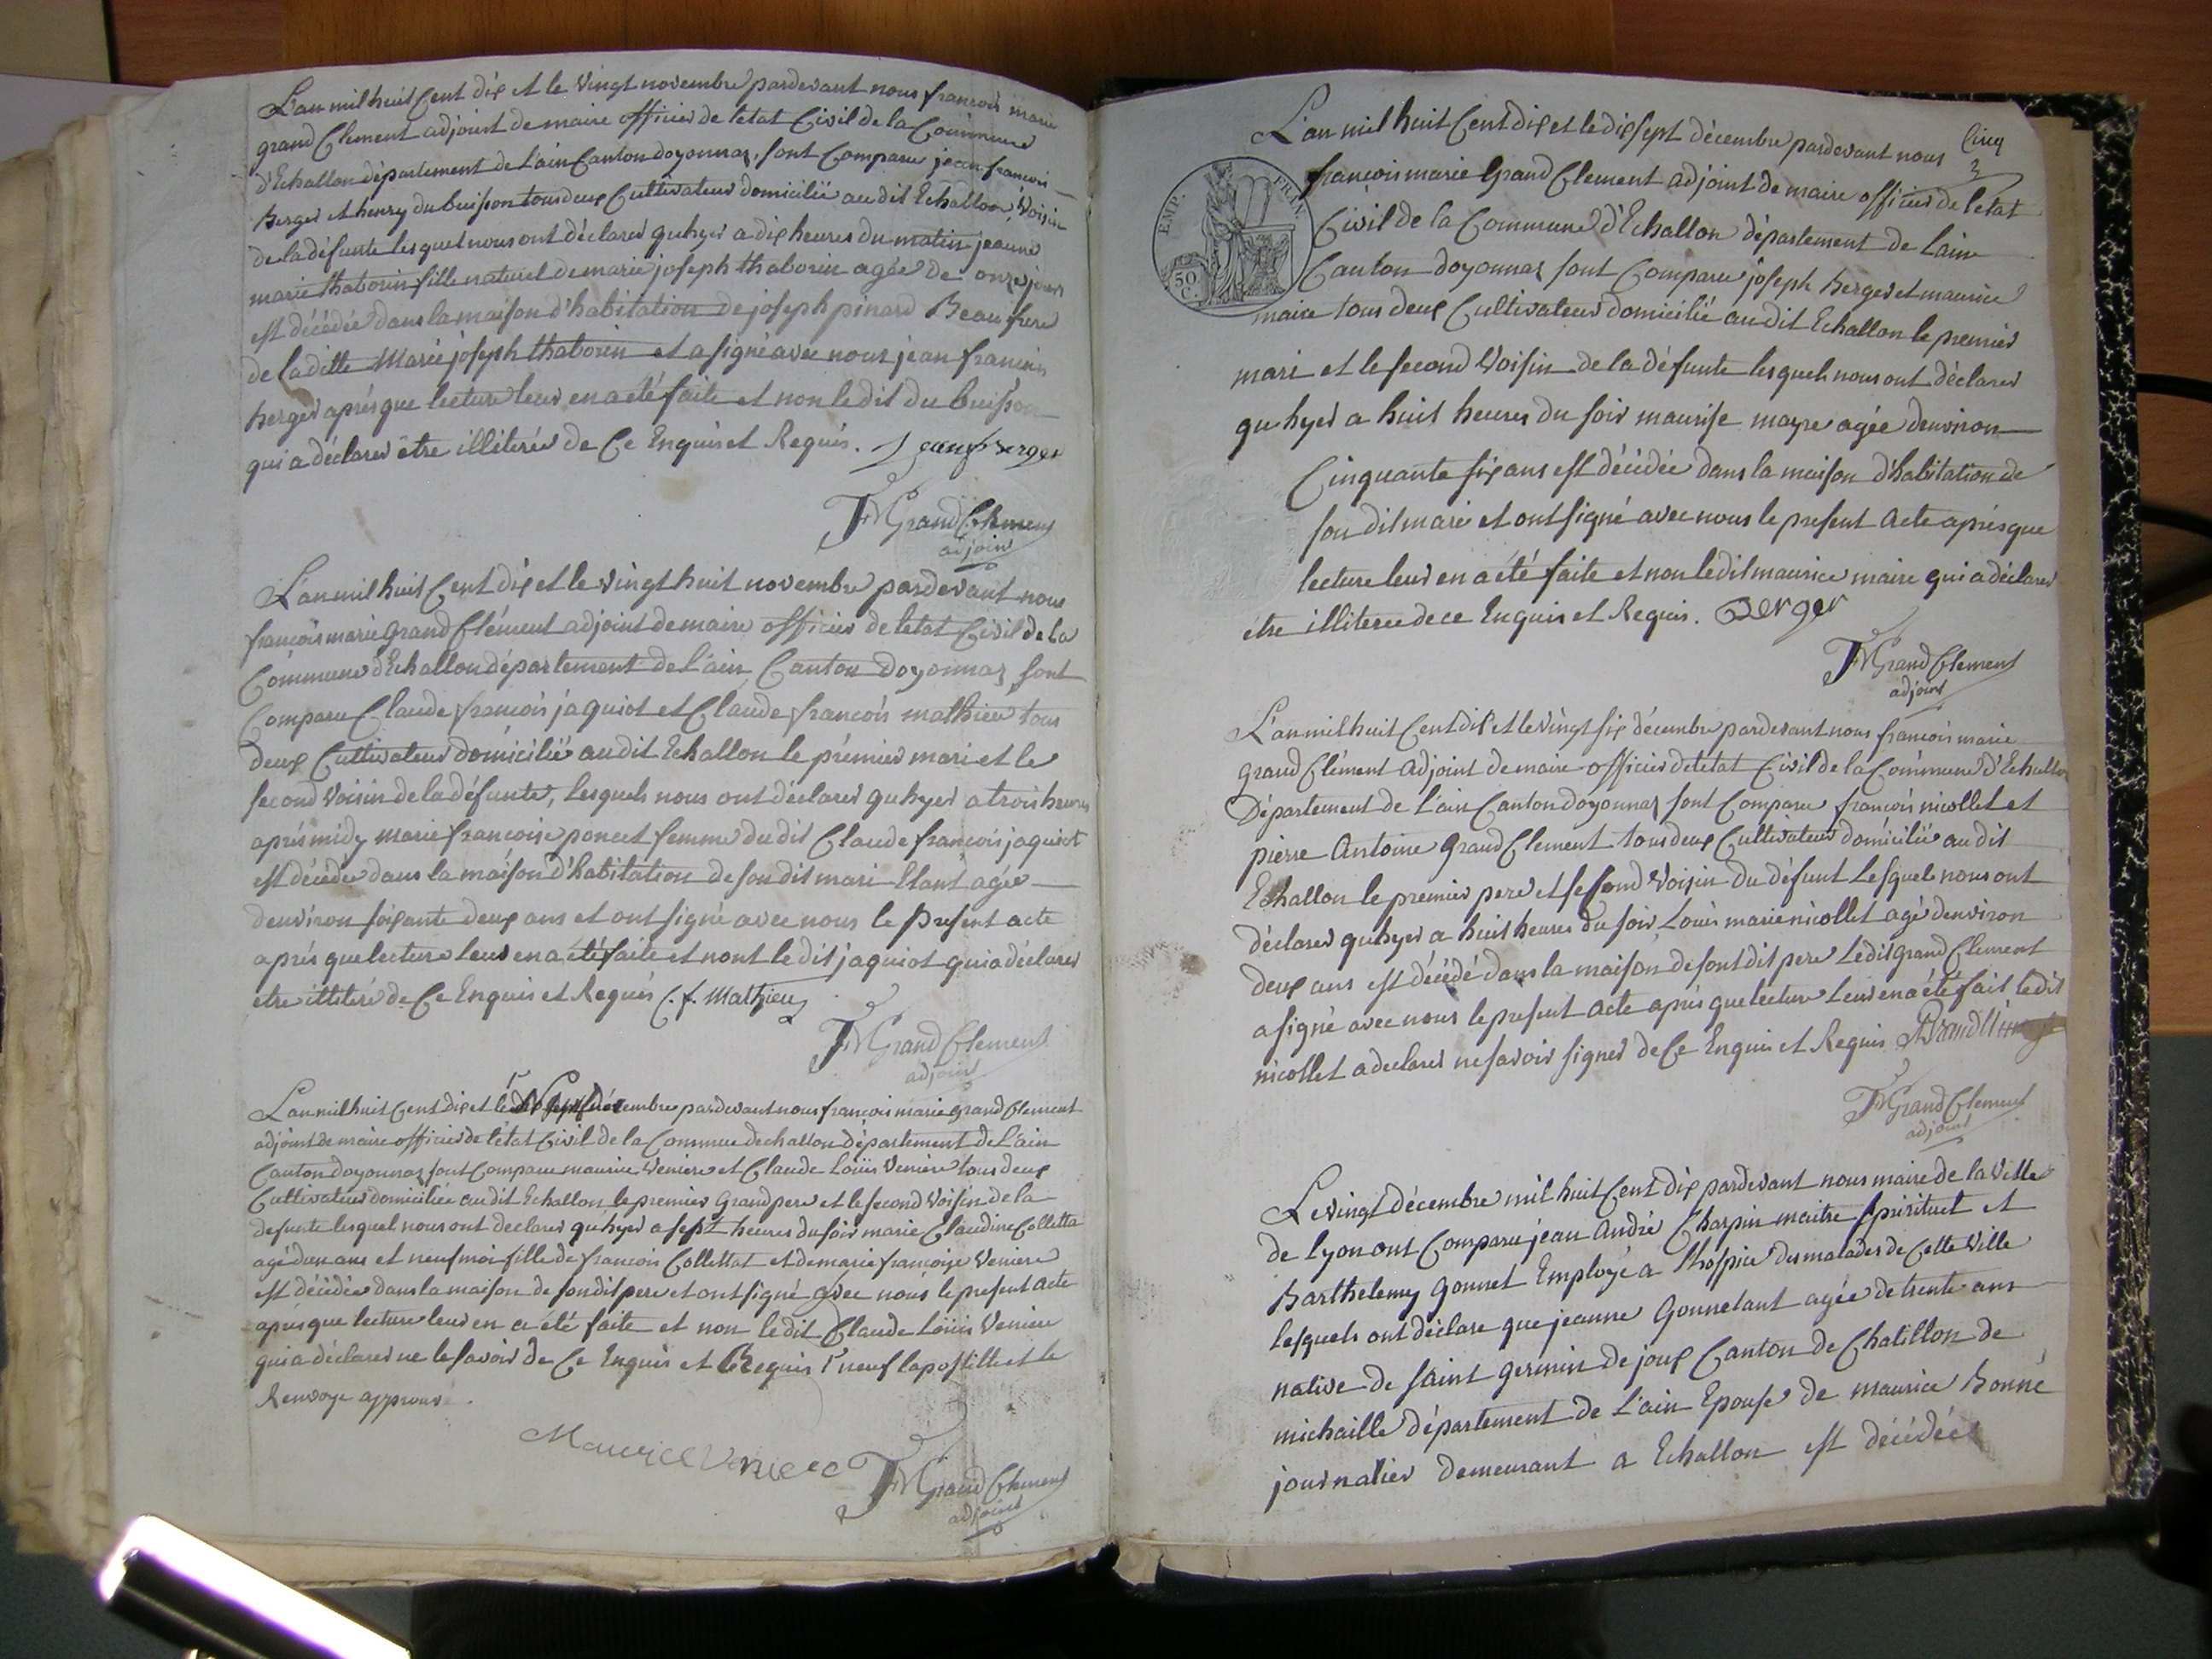 L'an mil huit Cent dix et le vingt novembre pardevant nous francois marie
grand Clement adjoint de maire officier de letat Civil de la Commune
d'Echallon département de L'ain Canton doyonnaz, sont Comparu jean francois
Berger et henry du buisson tous deux Cultivateur domicilié au dit Echallon Voisin
de la défunte lesquel nous ont déclarer quhyer a dix heures du matin jeanne
marie thaborin fille naturel de marie joseph thaborin agée de onze jours
est décédée dans la maison d'habitation de joseph pinard Beau frere
de la ditte Marie joseph thaborin et a signé avec nous jean francois
Berger aprés que lecture leur en a été faite et non le dit du buisson
qui a déclarer être illiterée de Ce Enquis et Requis. Jean f Berger
FM Grand Clement
adjoint
L'an mil huit Cent dix et le vingt huit novembre pardevant nous
francois marie Grand Clément adjoint de maire officier de letat Civil de la
Commune d'Echallon département de L'ain Canton doyonnaz sont
Comparu Claude francois jaquiot et Claude francois mathieu tous
deux Cultivateur domicilié au dit Echallon le prémier mari et le
second Voisin de la défunte, Lesquels nous ont déclarer quhyer a trois heures
aprés midy marie francoise poncet femme du dit Claude francois jaquiot
est décédée dans la maison d'habitation de son dit mari Etant agée
denviron soixante deux ans et ont signé avec nous le present acte
aprés que lecture leur en a été faite et nont le dit jaquiot qui a déclarer
etre illiteré de Ce Enquis et Requis C. f. Mathieu
FM Grand Clement
adjoint
L'an mil huit Cent dix et le décembre pardevant nous francois marie grand Clement
adjoint de maire officier de letat Civil de la Commune dechallon département de L'ain
Canton doyonnaz sont Comparu maurice Veniere et Claude Loüis Veniere tous deux
Cultivateur domiciliée au dit Echallon le premier Grand pere et le second Voisin de la
defunte lesquel nous ont declarer quhyer a sept heures du soir marie Claudine Colletta
agé dun ans et neuf moi fille de francois Collettat et de marie francoise Veniere
est décédée dans la maison de son dit pere et ont signé avec nous le present acte
aprés que lecture leur en a été faite et non le dit Claude Loüis Veniere
qui a déclarer ne le savoir de Ce Enquis et Requis neuf lapostille et le
Renvoye approuvé.
Maurice Veniere
FM Grand Clement
adjoint
Cinq
L'an mil huit Cent dix et le dix sept décembre pardevant nous
francois marie Grand Clement adjoint de maire officier de letat
Civil de la Commune d'Echallon département de Lain
Canton doyonnaz sont Comparu joseph Berger et maurice
maire tous deux Cultivateur domicilié au dit Echallon le premier
mari et le second Voisin de la défunte lesquels nous ont déclarer
quhyer a huit heures du soir maurise mayre agée denviron
Cinquante six ans est décédée dans la maison d'habitation de
son dit marie et ont signé avec nous le present Acte aprés que
lecture leur en a été faite et non le dit maurice maire qui a déclarer
étre illiterée de ce Enquis et Requis. Berger
FM Grand Clement
adjoint
EMP. FRAN.
50 C.
L'an mil huit Cent dix et le vingt six décembre pardevant nous francois marie
grand Clément Adjoint de maire officier de letat Civil de la Commune d'Echallon
Département de L'ain Canton doyonnaz sont Comparu francois nicollet et
pierre Antoine Grand Clement tous deux Cultivateur domicilié au dit
Echallon le premier pere et second Voisin du défunt Lesquels nous ont
déclarer quhyer a huit heures du soir Louis marie nicollet agé denviron
deux ans est décédé dans la maison de sont dit pere Le dit grand Clement
a signé avec nous le present acte aprés que lecture leur en a été fait le dit
nicollet a declarer ne savoir signer de Ce Enquis et Requis
FM Grand Clement
adjoint
Le vingt décembre mil huit Cent dix pardevant nous maire de la ville
de lyon ont Comparu jean André Charpin maitre spirituel et
Barthelemy Gonnet Employé a l'hospice des malades de Cette Ville
lesquels ont déclare que jeanne Gonnetant agée de trente ans
native de saint germin de joux Canton de Chatillon de
michaille département de L'ain Epouse de maurice Bonné
journalier demeurant a Echallon est décédée